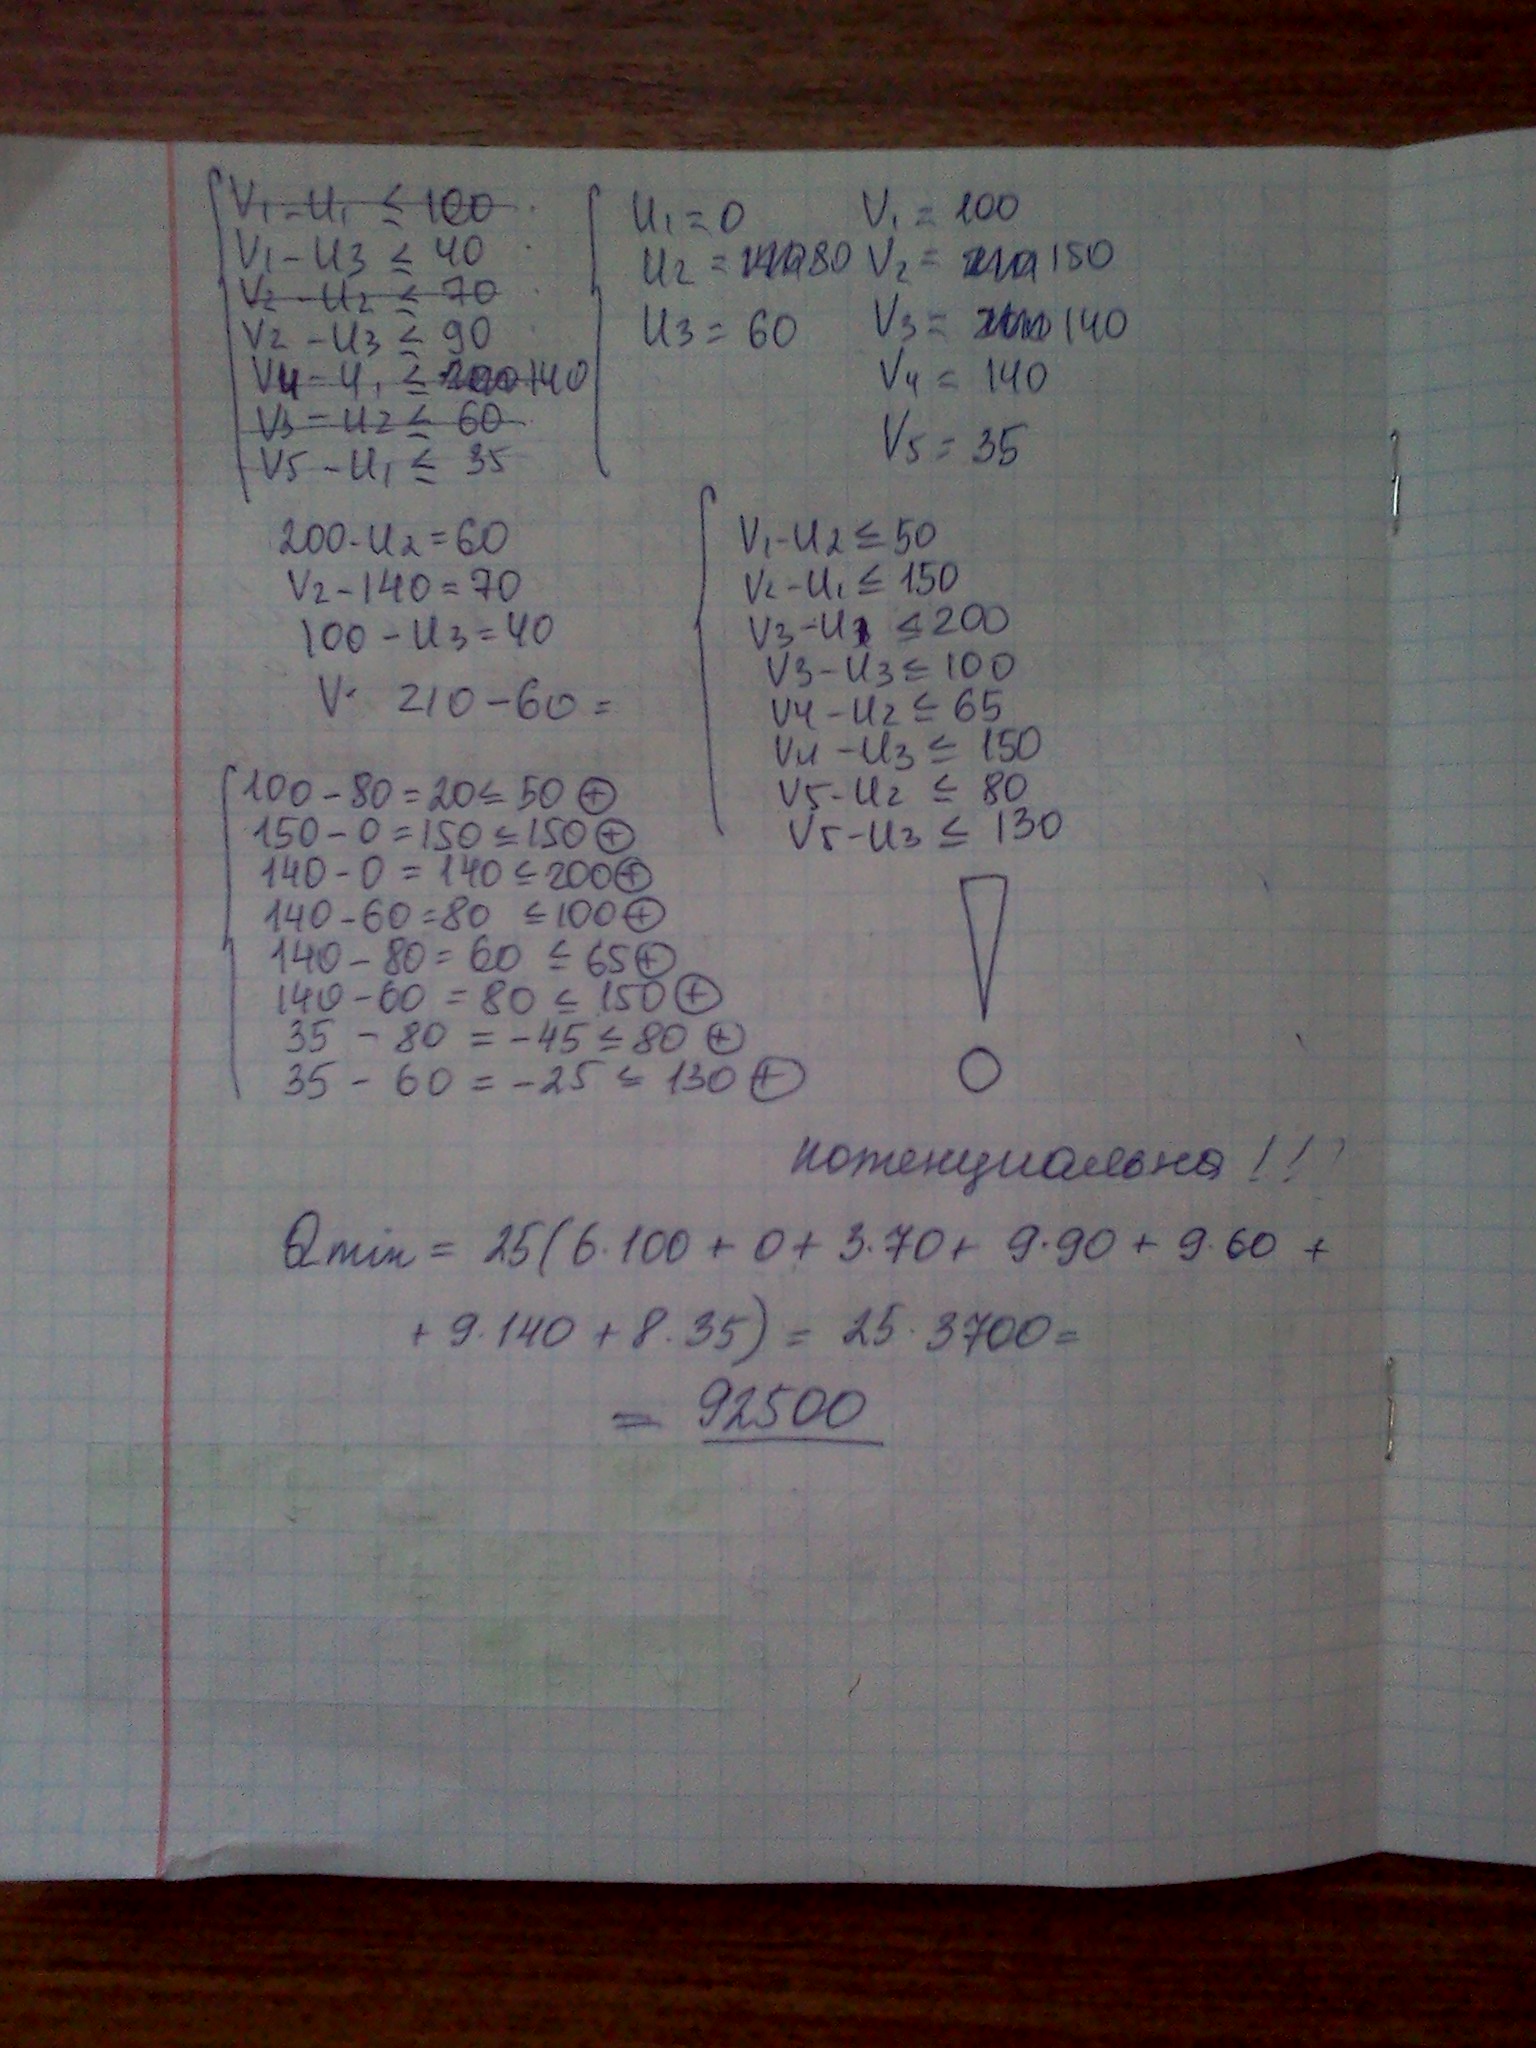 V₁ - U₁ ≤ 100
V₁ - U₃ ≤ 40
V₂ - U₂ ≤ 70
V₂ - U₃ ≤ 90
V₄ - U₁ ≤ 140
V₃ - U₂ ≤ 60
V₅ - U₁ ≤ 35
U₁ = 0
U₂ = 80
U₃ = 60
V₁ = 100
V₂ = 150
V₃ = 140
V₄ = 140
V₅ = 35
200 - U₂ = 60
V₂ - 140 = 70
100 - U₃ = 40
V 210 - 60 =
V₁ - U₂ ≤ 50
V₂ - U₁ ≤ 150
V₃ - U₁ ≤ 200
V₃ - U₃ ≤ 100
V₄ - U₂ ≤ 65
V₄ - U₃ ≤ 150
V₅ - U₂ ≤ 80
V₅ - U₃ ≤ 130
100 - 80 = 20 ≤ 50 ⊕
150 - 0 = 150 ≤ 150 ⊕
140 - 0 = 140 ≤ 200 ⊕
140 - 60 = 80 ≤ 100 ⊕
140 - 80 = 60 ≤ 65 ⊕
140 - 60 = 80 ≤ 150 ⊕
35 - 80 = -45 ≤ 80 ⊕
35 - 60 = -25 ≤ 130 ⊕
!
потенциальна!!!
Qmin = 25(6·100 + 0 + 3·70 + 9·90 + 9·60 +
+ 9·140 + 8·35) = 25·3700 =
= 92500